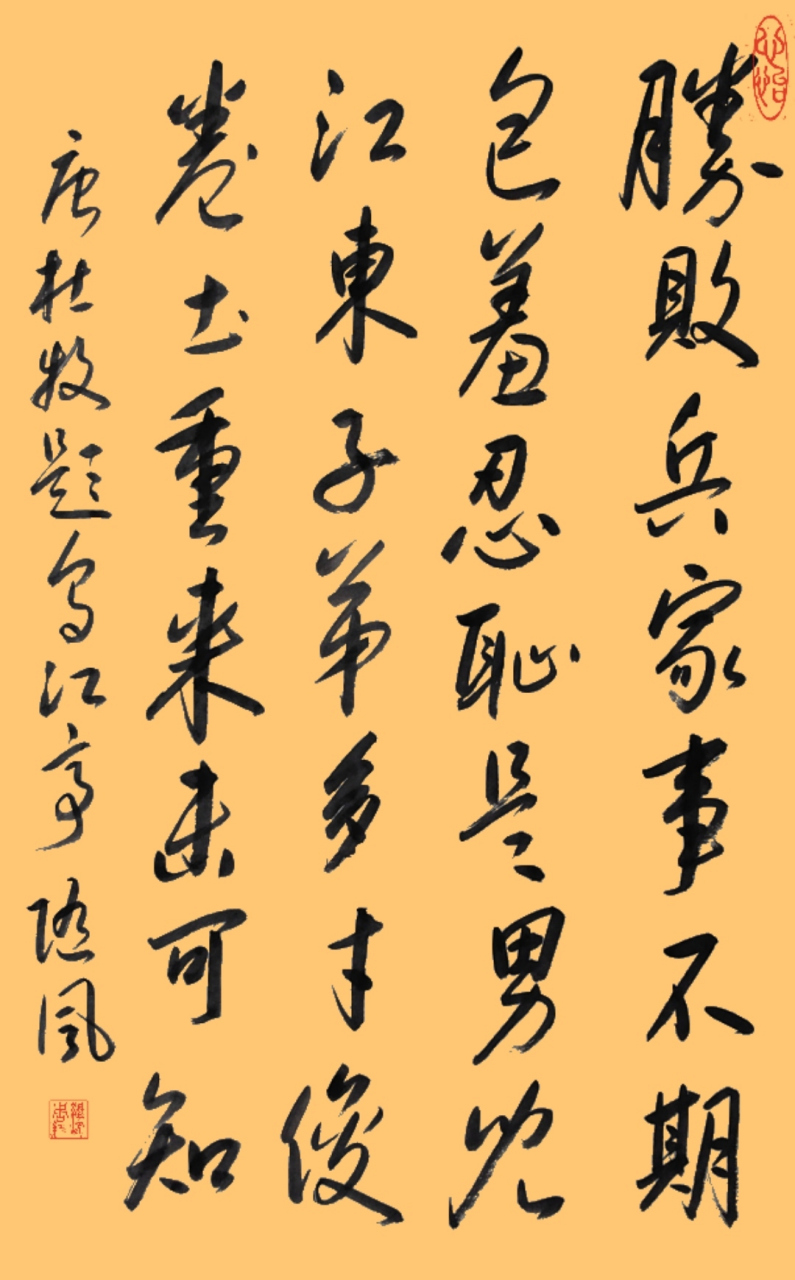 勝敗兵家事不期
包羞忍恥是男兒
江東子弟多才俊
卷土重來未可知
唐杜牧題烏江亭 隨風